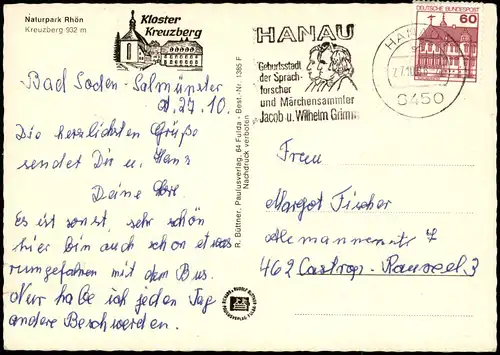 Naturpark Rhön
Kreuzberg 932 m
Kloster
Kreuzberg
Bad Soden-Salmünster
d. 27.10.
Die herzlichsten Grüße
sendet Dir u. Hans
Deine
Es ist sonst sehr schön
hier bin auch schon etwas
rumgefahren mit dem Bus.
Nur habe ich jeden Tag
andere Beschwerden.
R. Büttner, Paulusverlag, 64 Fulda - Best.-Nr. 1385 F
Nachdruck verboten
HANAU
Geburtsstadt
der Sprach-
forscher
und Märchensammler
Jacob u. Wilhelm Grimm
HANAU
6450
DEUTSCHE BUNDESPOST
60
Frau
Margot Fischer
Alemannenstr 7
462 Castrop-Rauxel 3